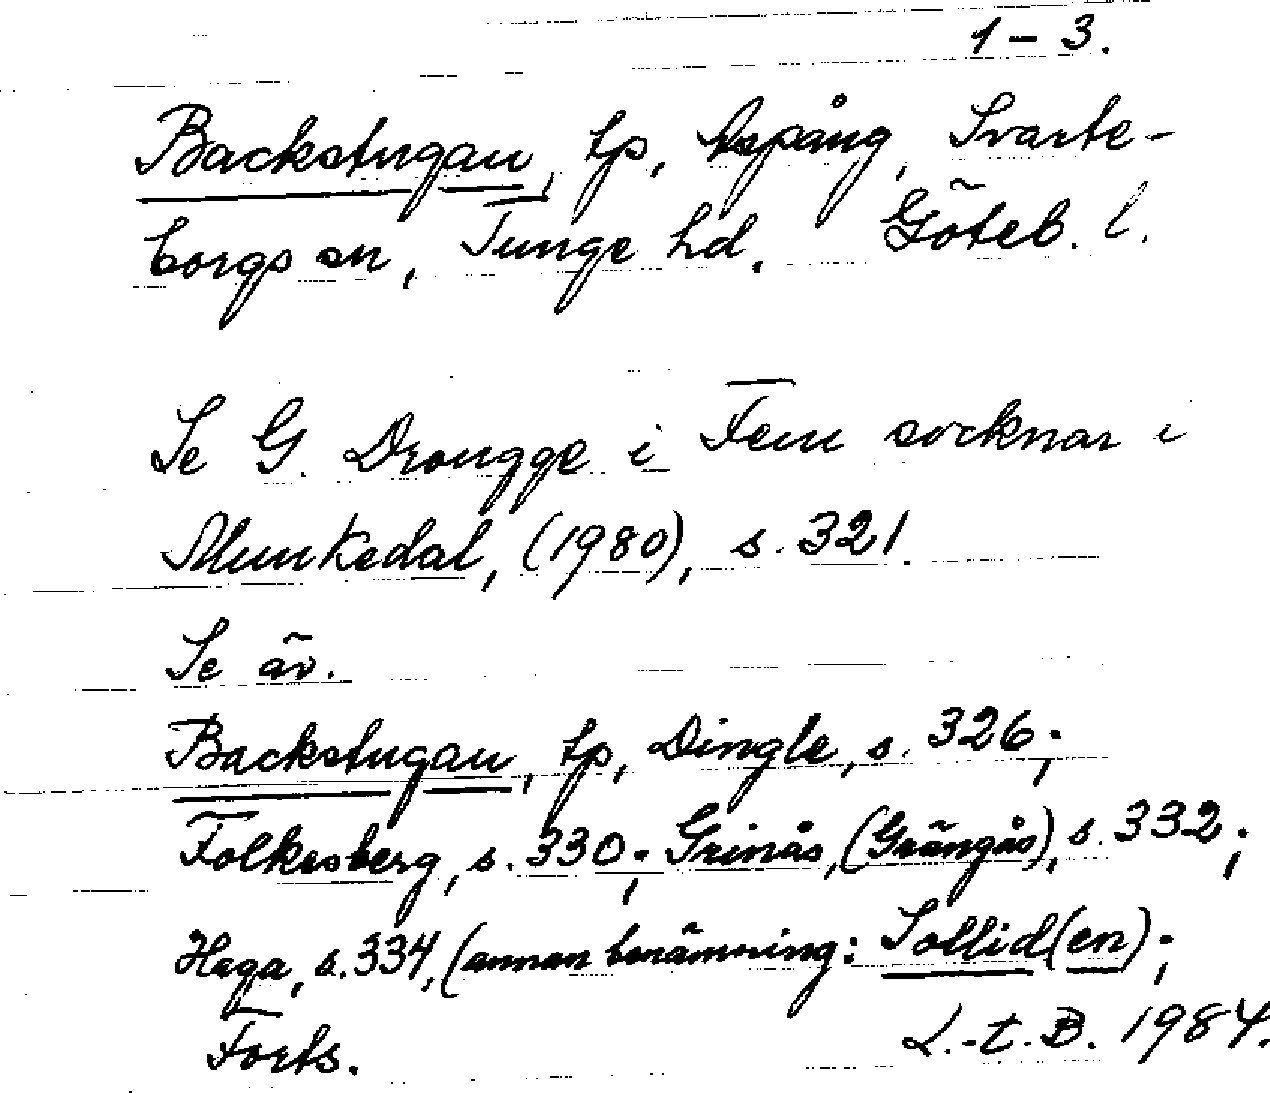 1-3.
Backstugan, tp, Aspång, Svarte-
borgs sn, Tunge hd. Göteb. l.
Se G. Drougge i Fem socknar i
Munkedal, (1980), s. 321.
Se äv.
Backstugan, tp, Dingle, s. 326;
Folkesberg, s. 330; Grinås, (Grängås), s. 332;
Haga, s. 334, (annan benämning: Sollid(en);
Forts. L.-t.B. 1984.